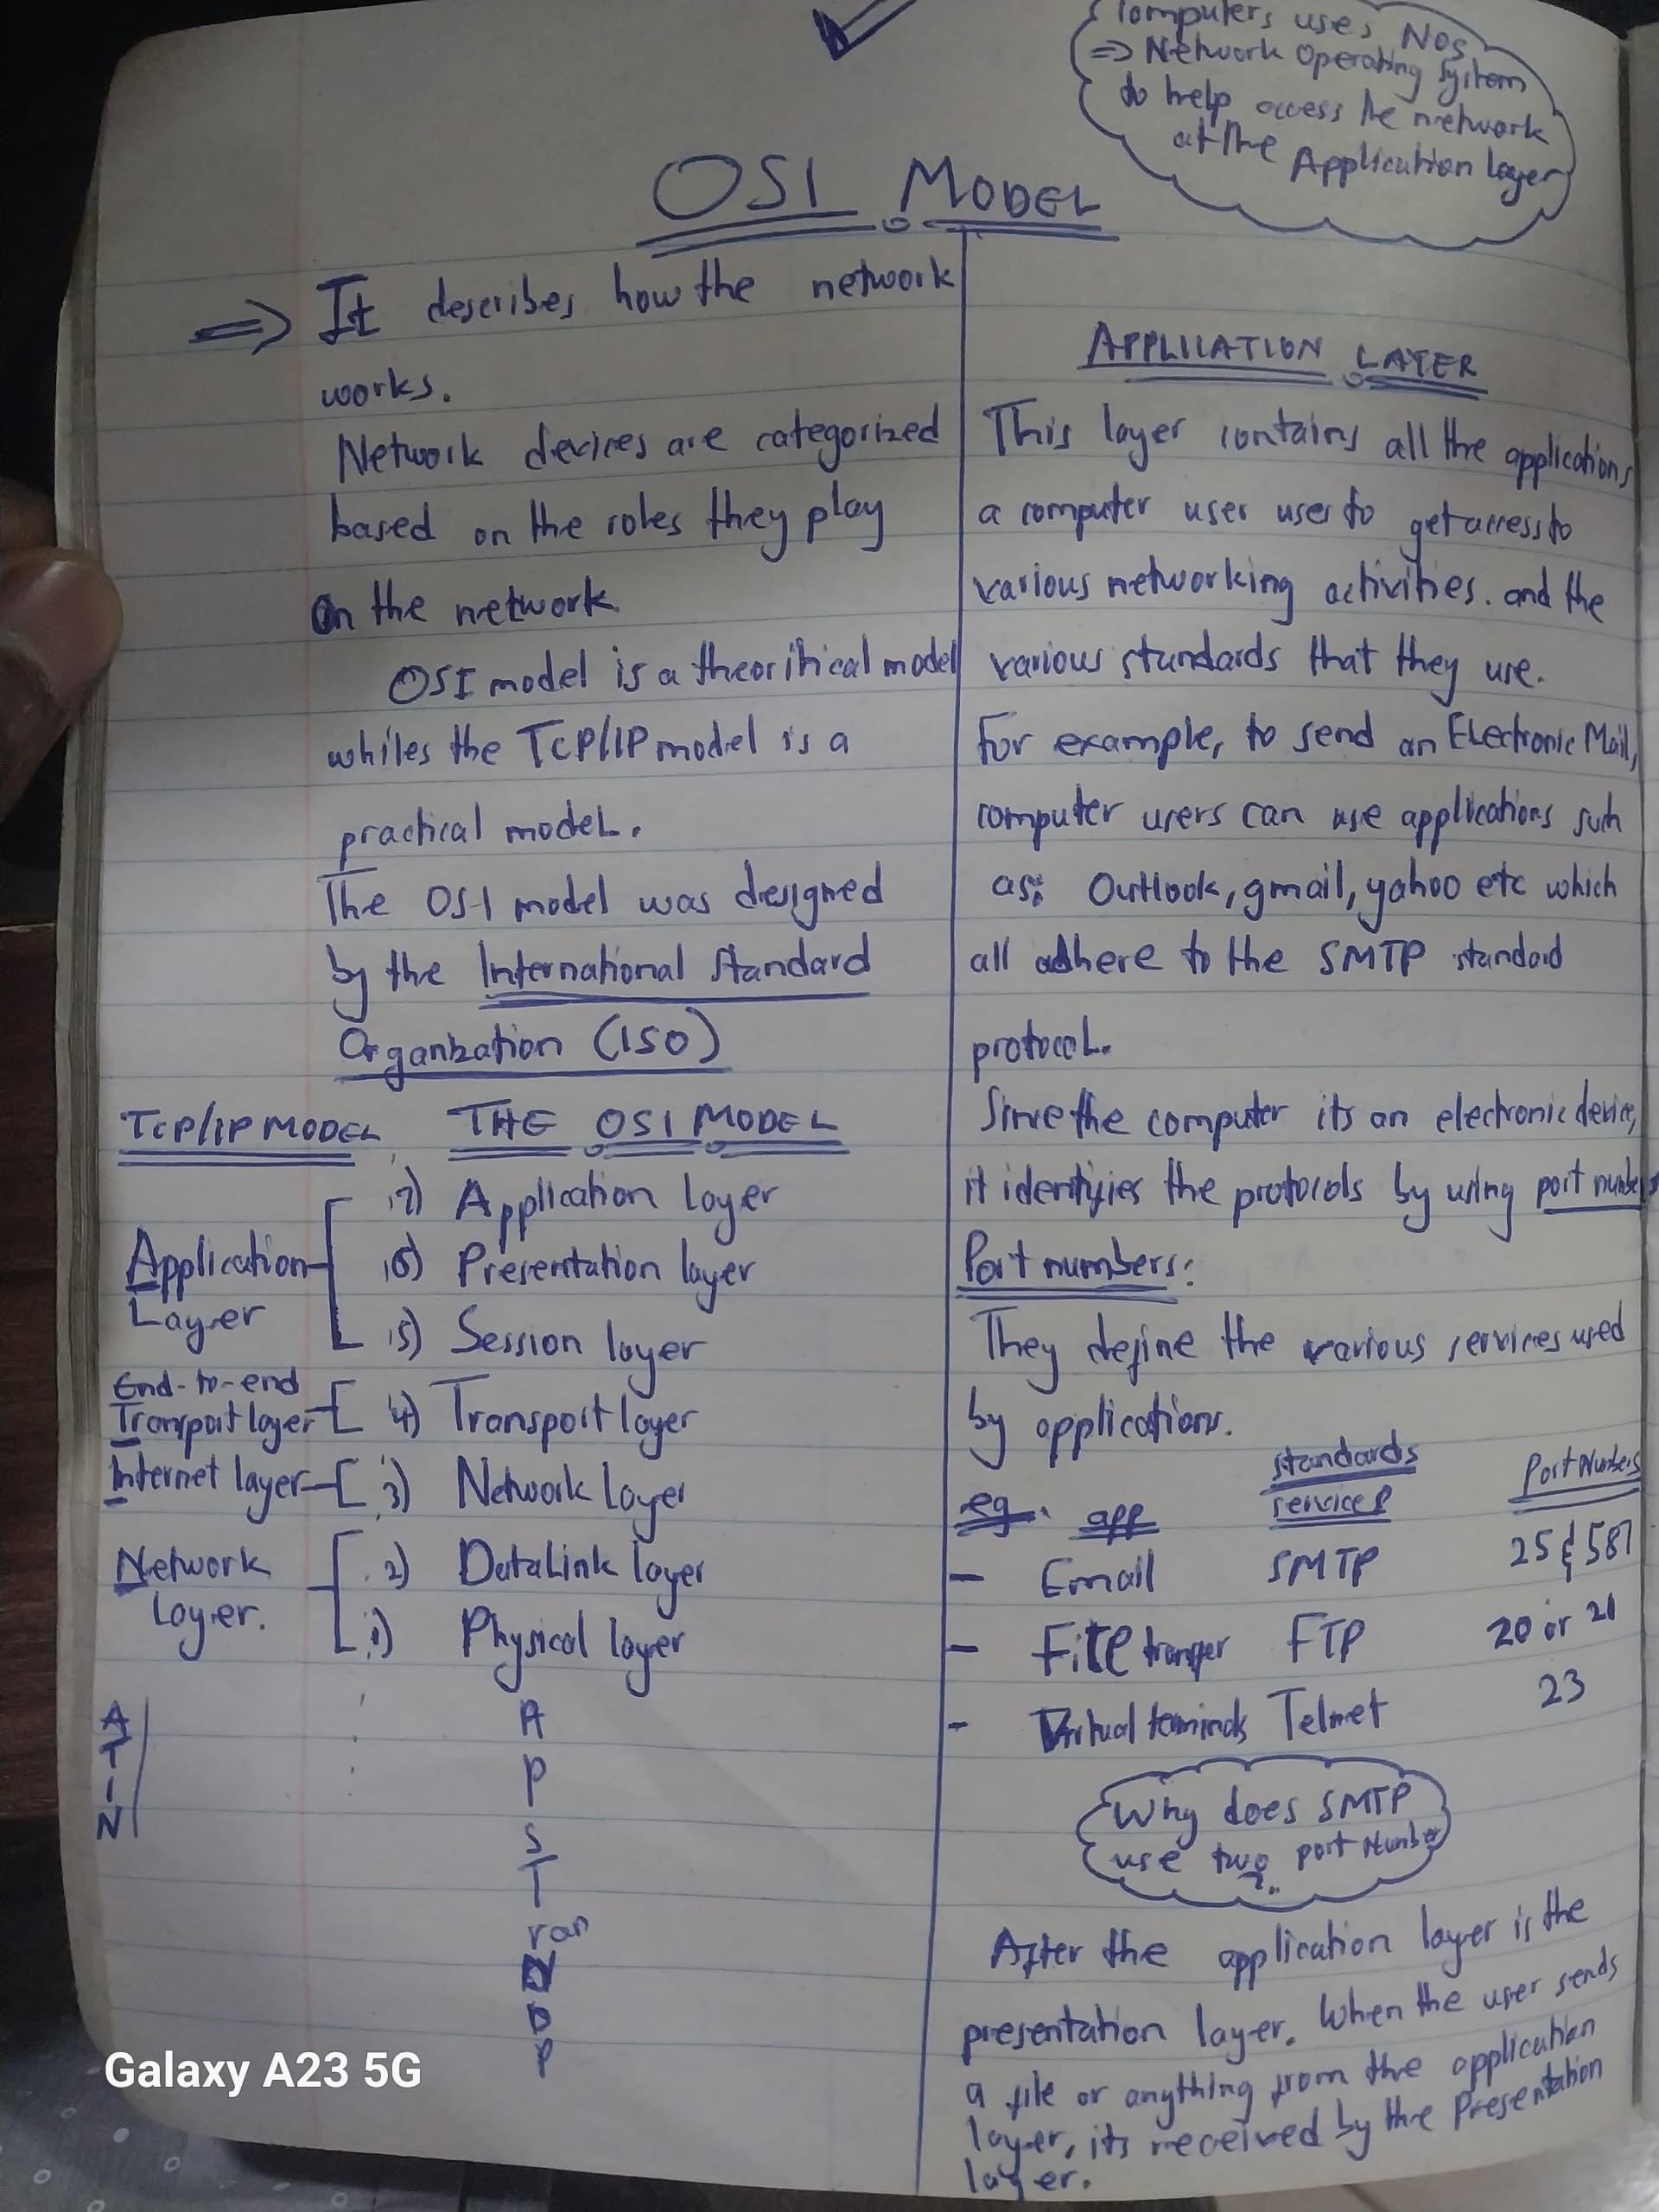 Computers uses NOS
=> Network Operating System
to help access the network
at the Application layer
OSI MODEL
=> It describes how the network
works.
Network devices are categorized
based on the roles they play
On the network
OSI model is a theoritical model
whiles the TCP/IP model is a
practical model.
The OSI model was designed
by the International Standard
Organization (ISO)
TCP/IP MODEL THE OSI MODEL
7) Application layer
Application 6) Presentation layer
Layer
5) Session layer
End-to-end
Transport layer 4) Transport layer
Internet layer 3) Network Layer
Network 2) DataLink layer
Layer. 1) Physical layer
A
T
I
N
A
P
S
T
ran
N
D
P
APPLICATION LAYER
This layer contains all the applications
a computer user uses to get access to
various networking activities. and the
various standards that they use.
For example, to send an Electronic Mail,
computer users can use applications such
as: Outlook, gmail, yahoo etc which
all adhere to the SMTP standard
protocol.
Since the computer its an electronic device,
it identifies the protocols by using port numbers
Port numbers:
They define the various services used
by applications.
eg. app standards services Port Numbers
- Email SMTP 25 & 587
- File transfer FTP 20 or 21
- Virtual terminals Telnet 23
Why does SMTP
use two port Number
?
After the application layer is the
presentation layer. When the user sends
a file or anything from the application
layer, its received by the Presentation
layer.
Galaxy A23 5G